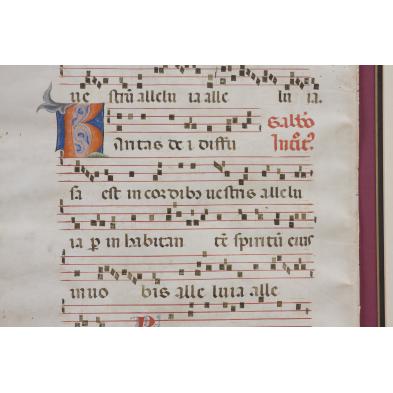 ue strū allelu ia alle lu ia.
Karitas de i diffu
Sabbō
Introit?
sa est in cordibʒ uestris allelu
ia p in habitan tē spiritū eius
in uo bis alle luia alle